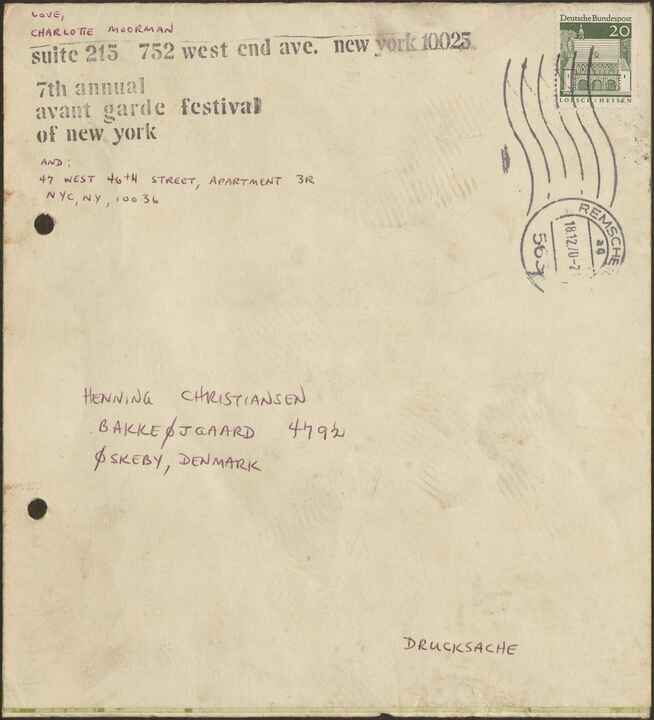 LOVE,
CHARLOTTE MOORMAN
suite 215 752 west end ave. new york 10025
7th annual
avant garde festival
of new york
AND:
47 WEST 46TH STREET, APARTMENT 3R
NYC, NY, 10036
Deutsche Bundespost
20
LORSCH/HESSEN
REMSCHE
18.12.70-2
563
HENNING CHRISTIANSEN
BAKKEØJGAARD 4792
ØSKEBY, DENMARK
DRUCKSACHE